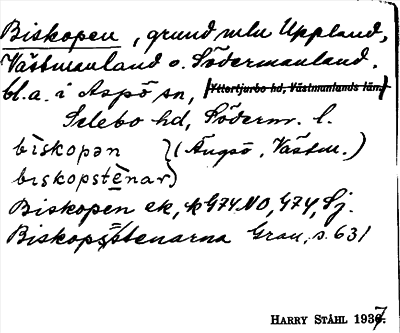 Biskopen, grund mln Uppland,
Västmanland o. Södermanland.
bl.a. i Aspö sn, [Yttertjurbo hd, Västmanlands län]
Selebo hd, Söderm. l.
biskopən } (Ängsö, Västm.)
biskopstenar }
Biskopen ek, k G74 NO, G74, Sj.
Biskopsstenarna Grau, s. 631
HARRY STÅHL 1937.